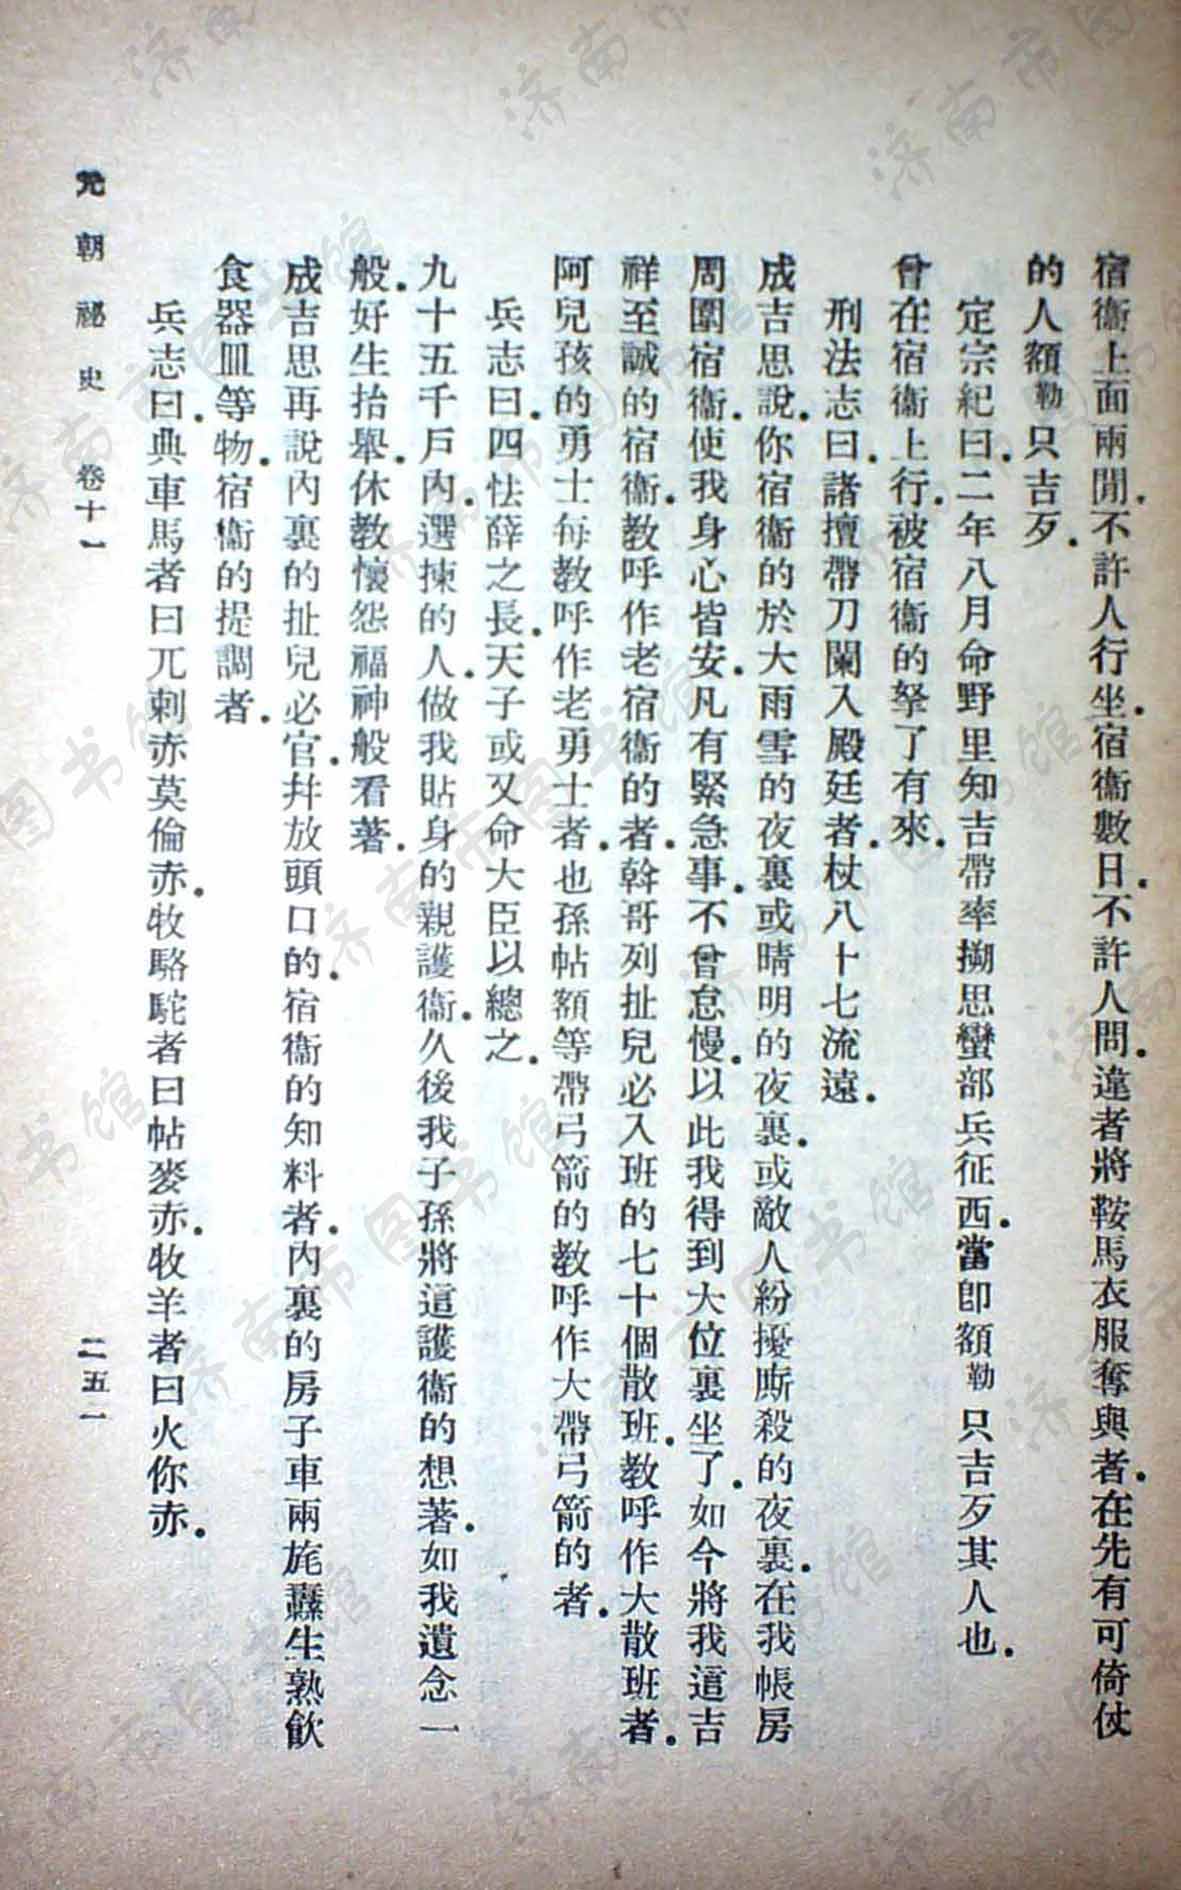 宿衞上面兩閒．不許人行坐．宿衞數日．不許人問．違者將鞍馬衣服奪與者．在先有可倚仗
的人額勒只吉歹．
定宗紀曰．二年八月命野里知吉帶率搠思蠻部兵征西．當卽額勒只吉歹其人也．
曾在宿衞上行．被宿衞的拏了有來．
刑法志曰．諸擅帶刀闌入殿廷者．杖八十七流遠．
成吉思說．你宿衞的於大雨雪的夜裏或晴明的夜裏．或敵人紛擾廝殺的夜裏．在我帳房
周圍宿衞．使我身心皆安．凡有緊急事．不曾怠慢．以此我得到大位裏坐了．如今將我這吉
祥至誠的宿衞．教呼作老宿衞的者．斡哥列扯兒必入班的七十個散班．教呼作大散班者．
阿兒孩的勇士每教呼作老勇士者．也孫帖額等帶弓箭的教呼作大帶弓箭的者．
兵志曰．四怯薛之長．天子或又命大臣以總之．
九十五千戶內．選揀的人．做我貼身的親護衞．久後我子孫將這護衞的想著．如我遺念一
般．好生抬舉．休教懷怨福神般看著．
成吉思再說內裏的扯兒必官．幷放頭口的．宿衞的知料者．內裏的房子車兩旄纛生熟飮
食器皿等物．宿衞的提調者．
兵志曰．典車馬者曰兀剌赤莫倫赤．牧駱駝者曰帖麥赤．牧羊者曰火你赤．
元朝祕史 卷十一 二五一
济南市图书馆